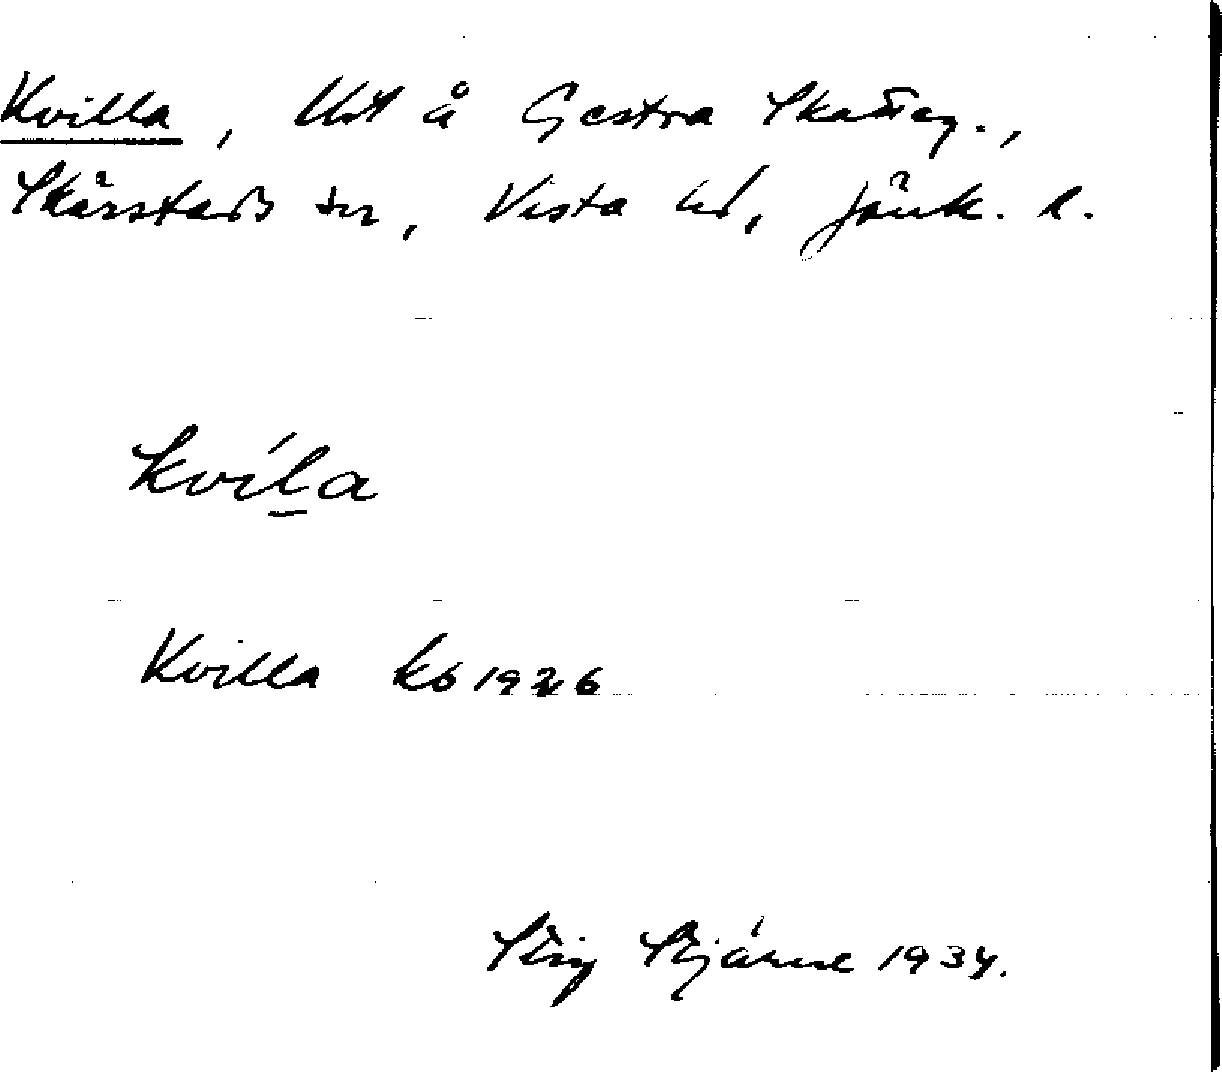 Kvilla, Uft å Gestra Skatteg.,
Skärstads sn, Vista hd, Jönk. l.
kvíl̲a
Kvilla kb 1926
Stig Bjärne 1934.